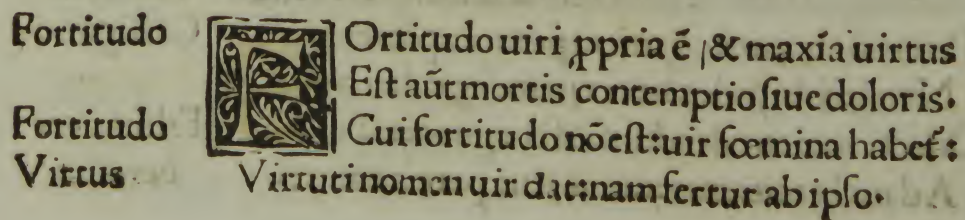 Fortitudo
FOrtitudo uiri ꝓpria ē /& maxīa uirtus
Eſt aūt mortis contemptio ſiue doloris.
Fortitudo
Cui fortitudo nō eſt:uir fœmina habet᷑:
Virtus
Virtuti nomen uir dat:nam fertur ab ipſo.